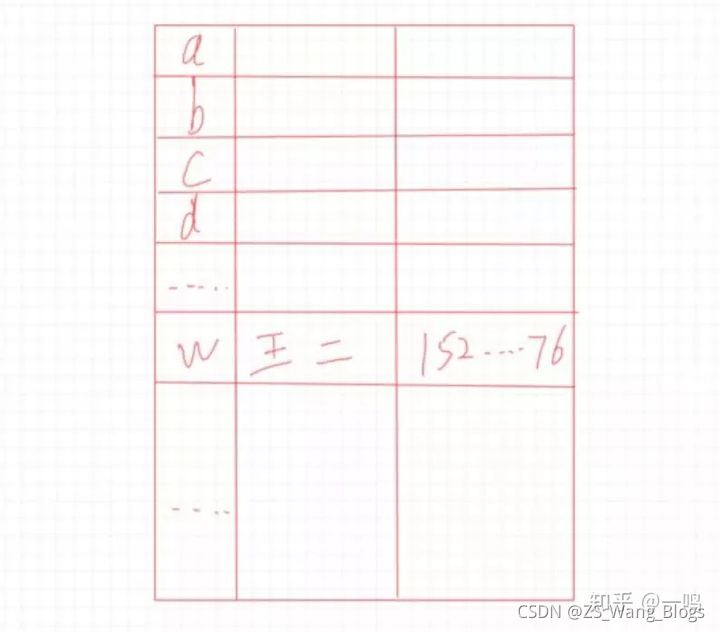 a
b
c
d
.....
w 王二 152....76
....
知乎 @一鸣
CSDN @ZS_Wang_Blogs